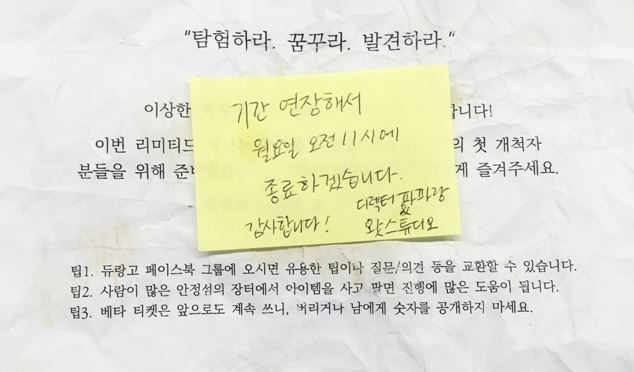 "탐험하라. 꿈꾸라. 발견하라."
이상한
합니다!
기간 연장해서
이번 리미티드
월요일 오전 11시에
의 첫 개척자
분들을 위해 준비
게 즐겨주세요.
종료하겠습니다.
디렉터 파파랑
&
감사합니다!
왓스튜디오
팁1. 듀랑고 페이스북 그룹에 오시면 유용한 팁이나 질문/의견 등을 교환할 수 있습니다.
팁2. 사람이 많은 안정섬의 장터에서 아이템을 사고 팔면 진행에 많은 도움이 됩니다.
팁3. 베타 티켓은 앞으로도 계속 쓰니, 버리거나 남에게 숫자를 공개하지 마세요.